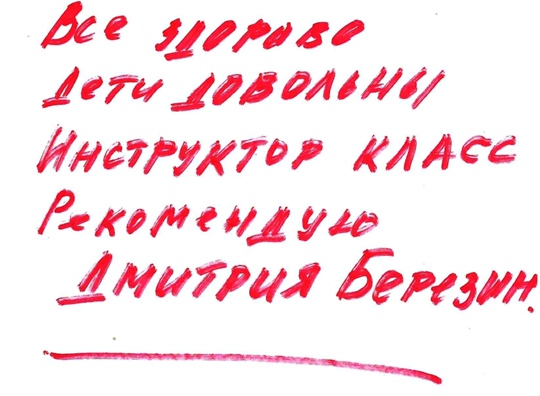 Все здорово
Дети довольны
Инструктор класс
Рекомендую
Дмитрия Березин.